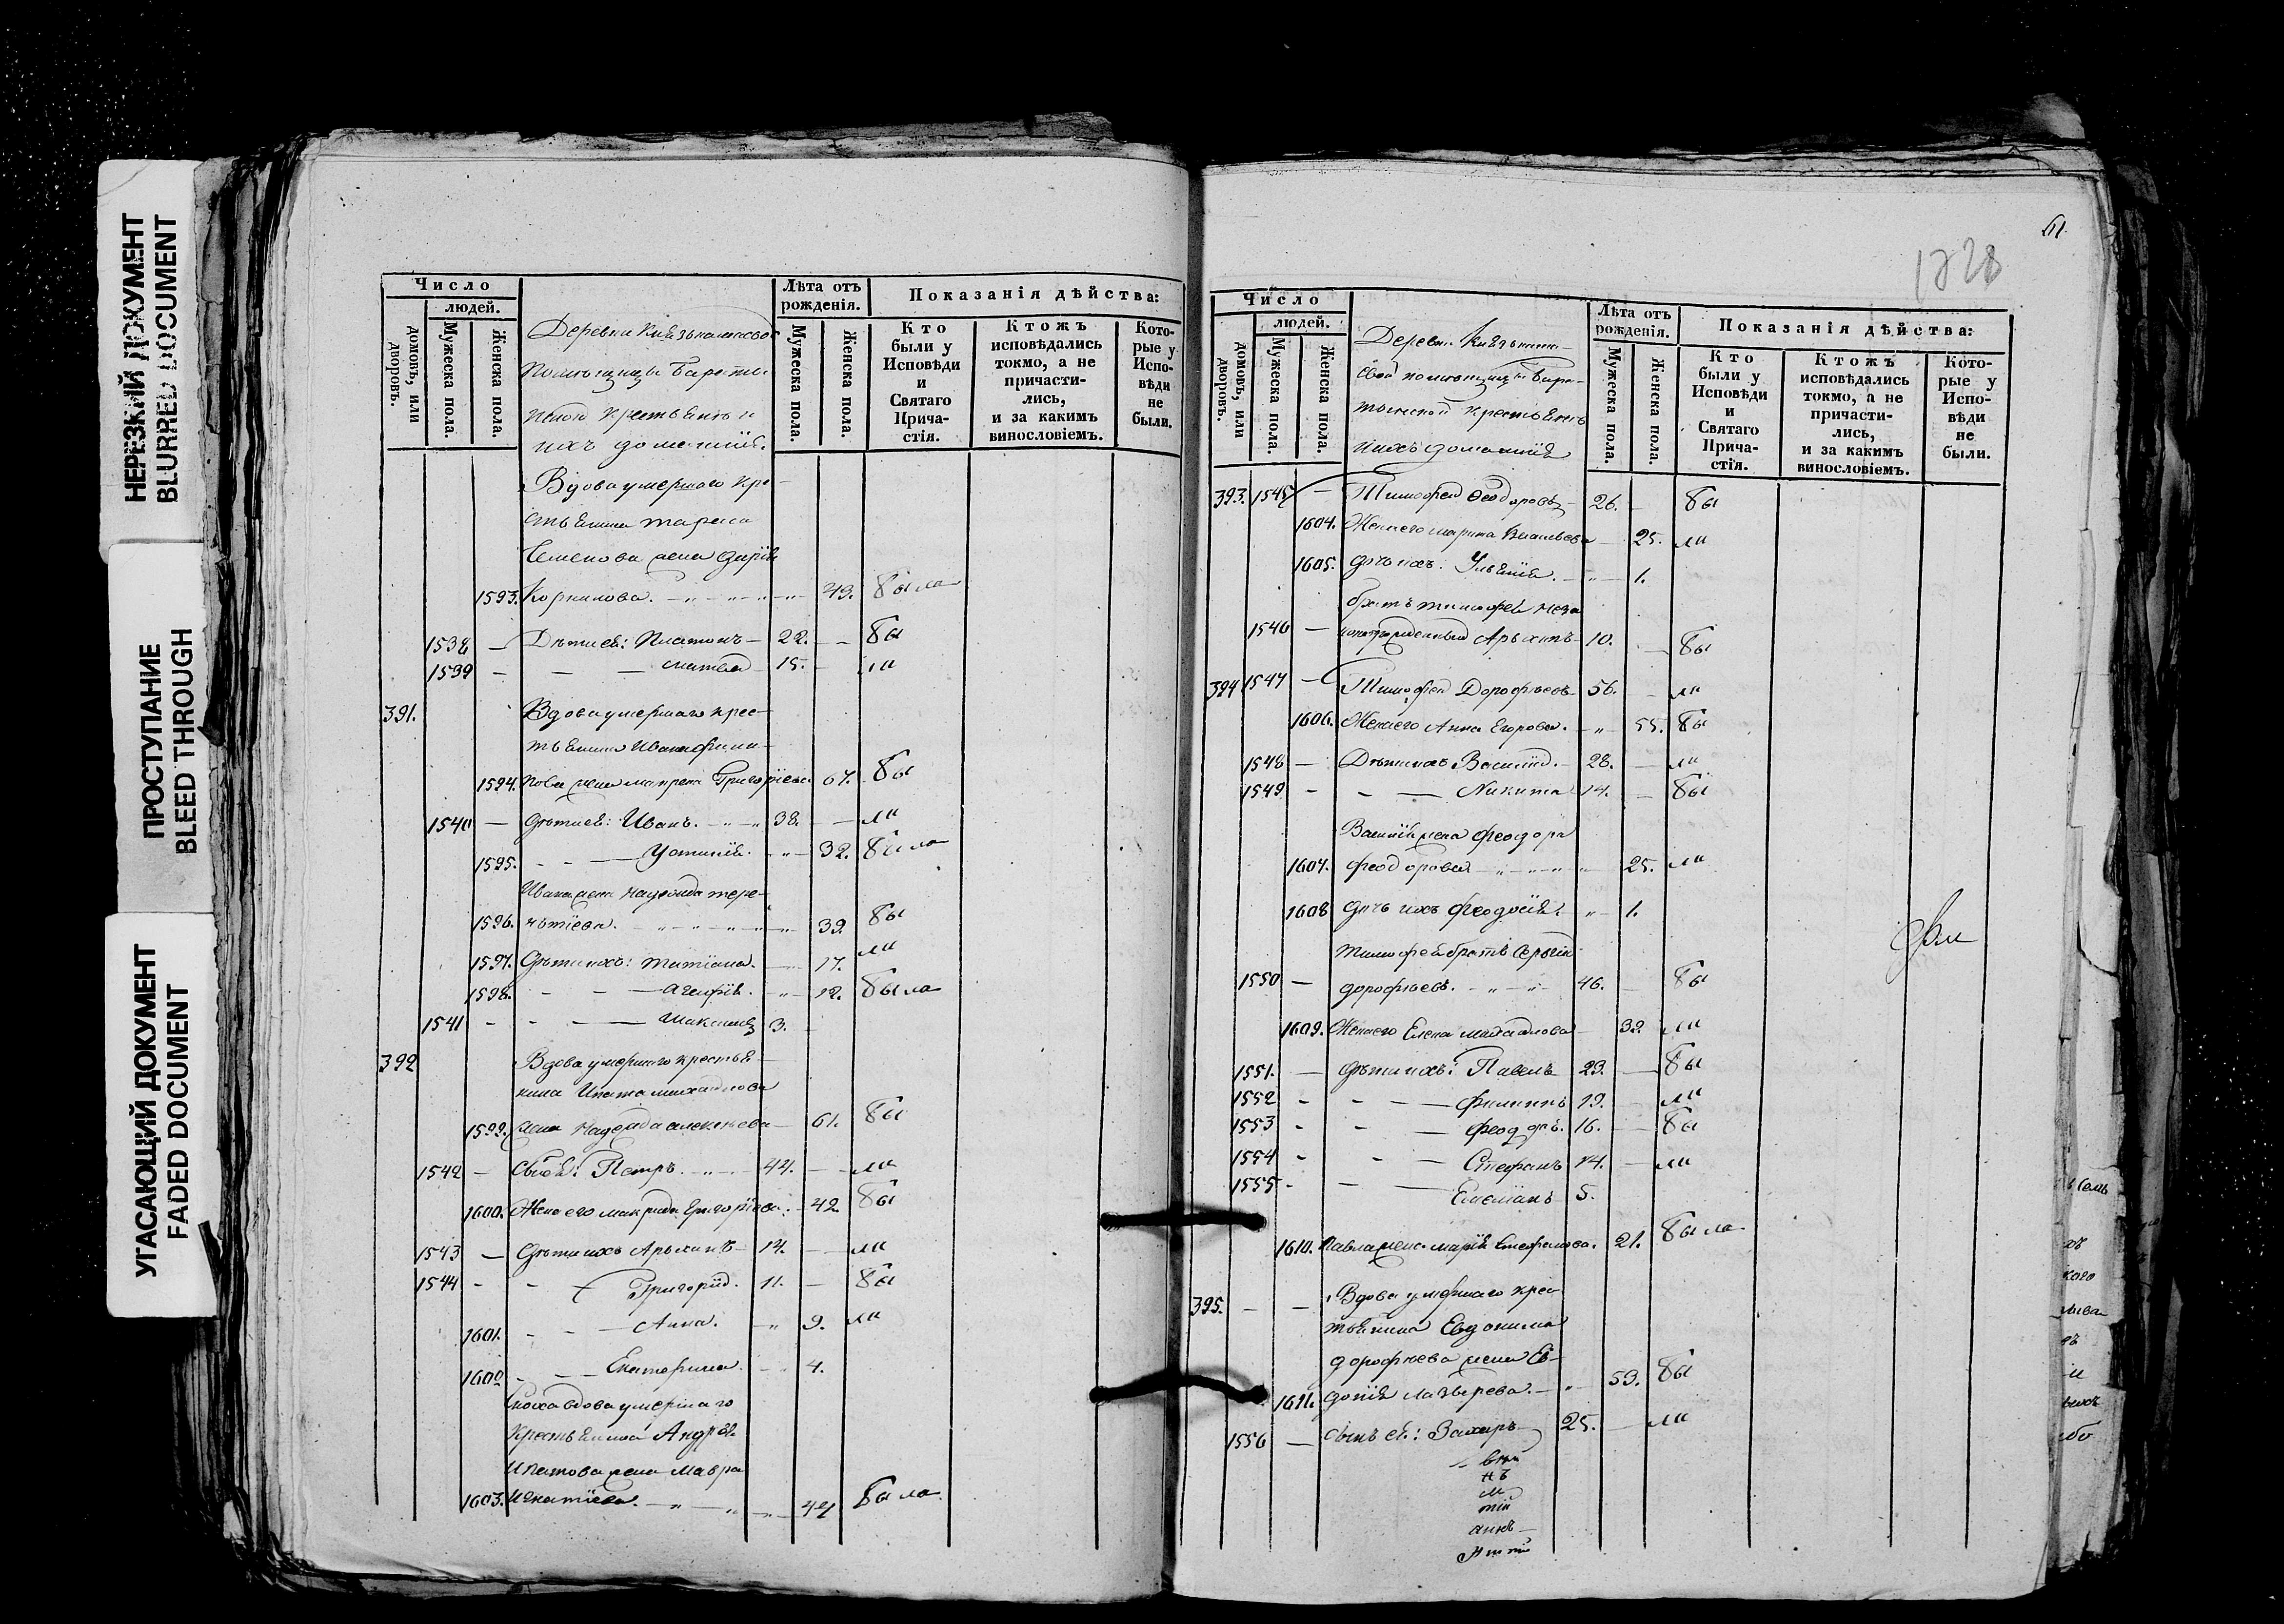 НЕРЕЗКИЙ ДОКУМЕНТ
BLURRED DOCUMENT
ПРОСТУПАНИЕ
BLEED THROUGH
УГАСАЮЩИЙ ДОКУМЕНТ
FADED DOCUMENT
Число
людей.
домовъ, или дворовъ.
Мужеска пола.
Женска пола.
Деревни
Помѣщицы Бараты-
нской крестьянъ и
ихъ домашніе.
Лѣта отъ рожденія.
Мужеска пола.
Женска пола.
Показанія дѣйства:
Кто были у Исповѣди и Святаго Причастія.
Ктожъ исповѣдались токмо, а не причастились, и за какимъ винословіемъ.
Которые у Исповѣди не были.
Вдова умершаго кре-
стьянина Тараса
Семенова жена Дарія
1593. Корнилова. 43. была
1538 — Дѣти ея: Платонъ — 22. — бы
1539 — — — Матвей 15. — ли
391. Вдова умершаго крес-
тьянина Ивана Фили-
1594. пова жена Григорьева 67. бы
1540 — Дѣти ея: Иванъ. 38. — ли
1595. — — Устинія. 32. была
Ивана жена Надежда Тере-
1596. нтіева. 39. бы
1597. Дѣти ихъ: Татіана. 17. ли
1598. — — Агафія. 12. была
1541 — — — Максимъ 3.
392 Вдова умершаго крестья-
нина Ипата Михайлова
1599. жена Надежда Алексѣева 61. бы
1542 — Сынъ ея: Петръ. 44. — ли
1600. Жена его Григорьева. 42 бы
1543 — Дѣти ихъ Архипъ 14. — ли
1544 — — Григорій. 11. — бы
1601. — — Анна. 9. ли
1602 — — Екатерина. 4.
Сноха вдова умершаго
крестьянина Андрея
Ипатова жена Мавра
1603. Игнатіева. 44 была
61.
1728
Число
людей.
домовъ, или дворовъ.
Мужеска пола.
Женска пола.
Деревни
помѣщицы Бара-
тынской крестьянъ
и ихъ домашніе
Лѣта отъ рожденія.
Мужеска пола.
Женска пола.
Показанія дѣйства:
Кто были у Исповѣди и Святаго Причастія.
Ктожъ исповѣдались токмо, а не причастились, и за какимъ винословіемъ.
Которые у Исповѣди не были.
393. 1545 — Тимофей Ѳеодоровъ 26. — бы
1604. Жена его Марина 25. ли
1605. Дочь ихъ: Ульянія. 1.
братъ Тимофея
1546 — Архипъ 10. — бы
394 1547 — Тимофей Дорофѣевъ 56. — ли
1606. Жена его Анна Егорова. 55. бы
1548 — Дѣти ихъ Василій. 28. — ли
1549 — — — Никита 14. — бы
Василія жена Феодора
1607. Феодорова 25. ли
1608 дочь ихъ Феодосія. 1.
Тимофея братъ Сергей
1550 — Дорофѣевъ. 46. — бы
1609. Жена его Елена Михайлова 39. ли
1551. — Дѣти ихъ: Павелъ 23. — бы
1552 — — — Филиппъ 19. — ли
1553 — — — Феодоръ. 16. — бы
1554 — — — Стефанъ 14. — ли
1555 — — — Емеліанъ 5.
1610. Павла жена Марія Стефанова. 21. была
395. — — Вдова умершаго крес-
тьянина Евдокима
Дорофѣева жена Ев-
1611. докія Лазырева. 53. бы
1556 — Сынъ ея: Захаръ 25. — ли